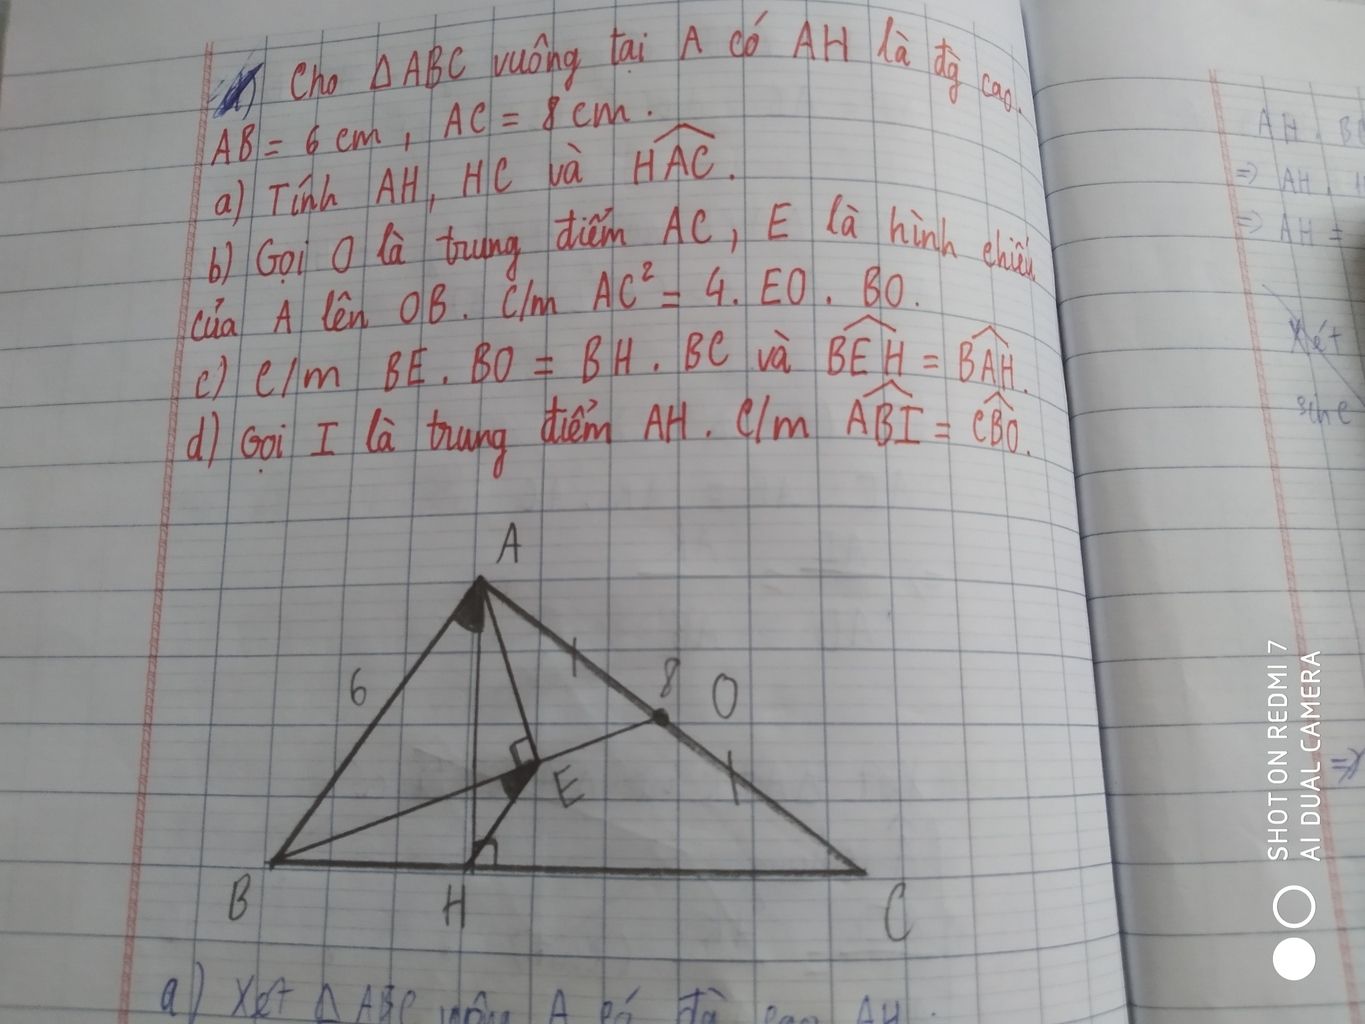 Cho ΔABC vuông tại A có AH là đg cao.
AB = 6 cm, AC = 8 cm.
a) Tính AH, HC và HAC.
b) Gọi O là trung điểm AC, E là hình chiếu
của A lên OB. C/m AC² = 4. EO. BO.
c) C/m BE. BO = BH. BC và BEH = BAH.
d) Gọi I là trung điểm AH. C/m ABI = CBO.
A
6
8
O
E
B
H
C
a) Xét ΔABC vuông A có đg cao AH.
AH. BC
=> AH.
=> AH =
Xét
SHOT ON REDMI 7
AI DUAL CAMERA